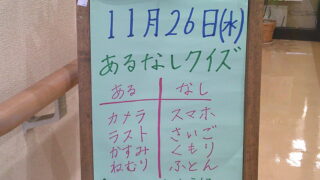 11月26日(水)
あるなしクイズ
ある なし
カナラ スマホ
ラスト さいご
かすみ くもり
ねむり ふとん